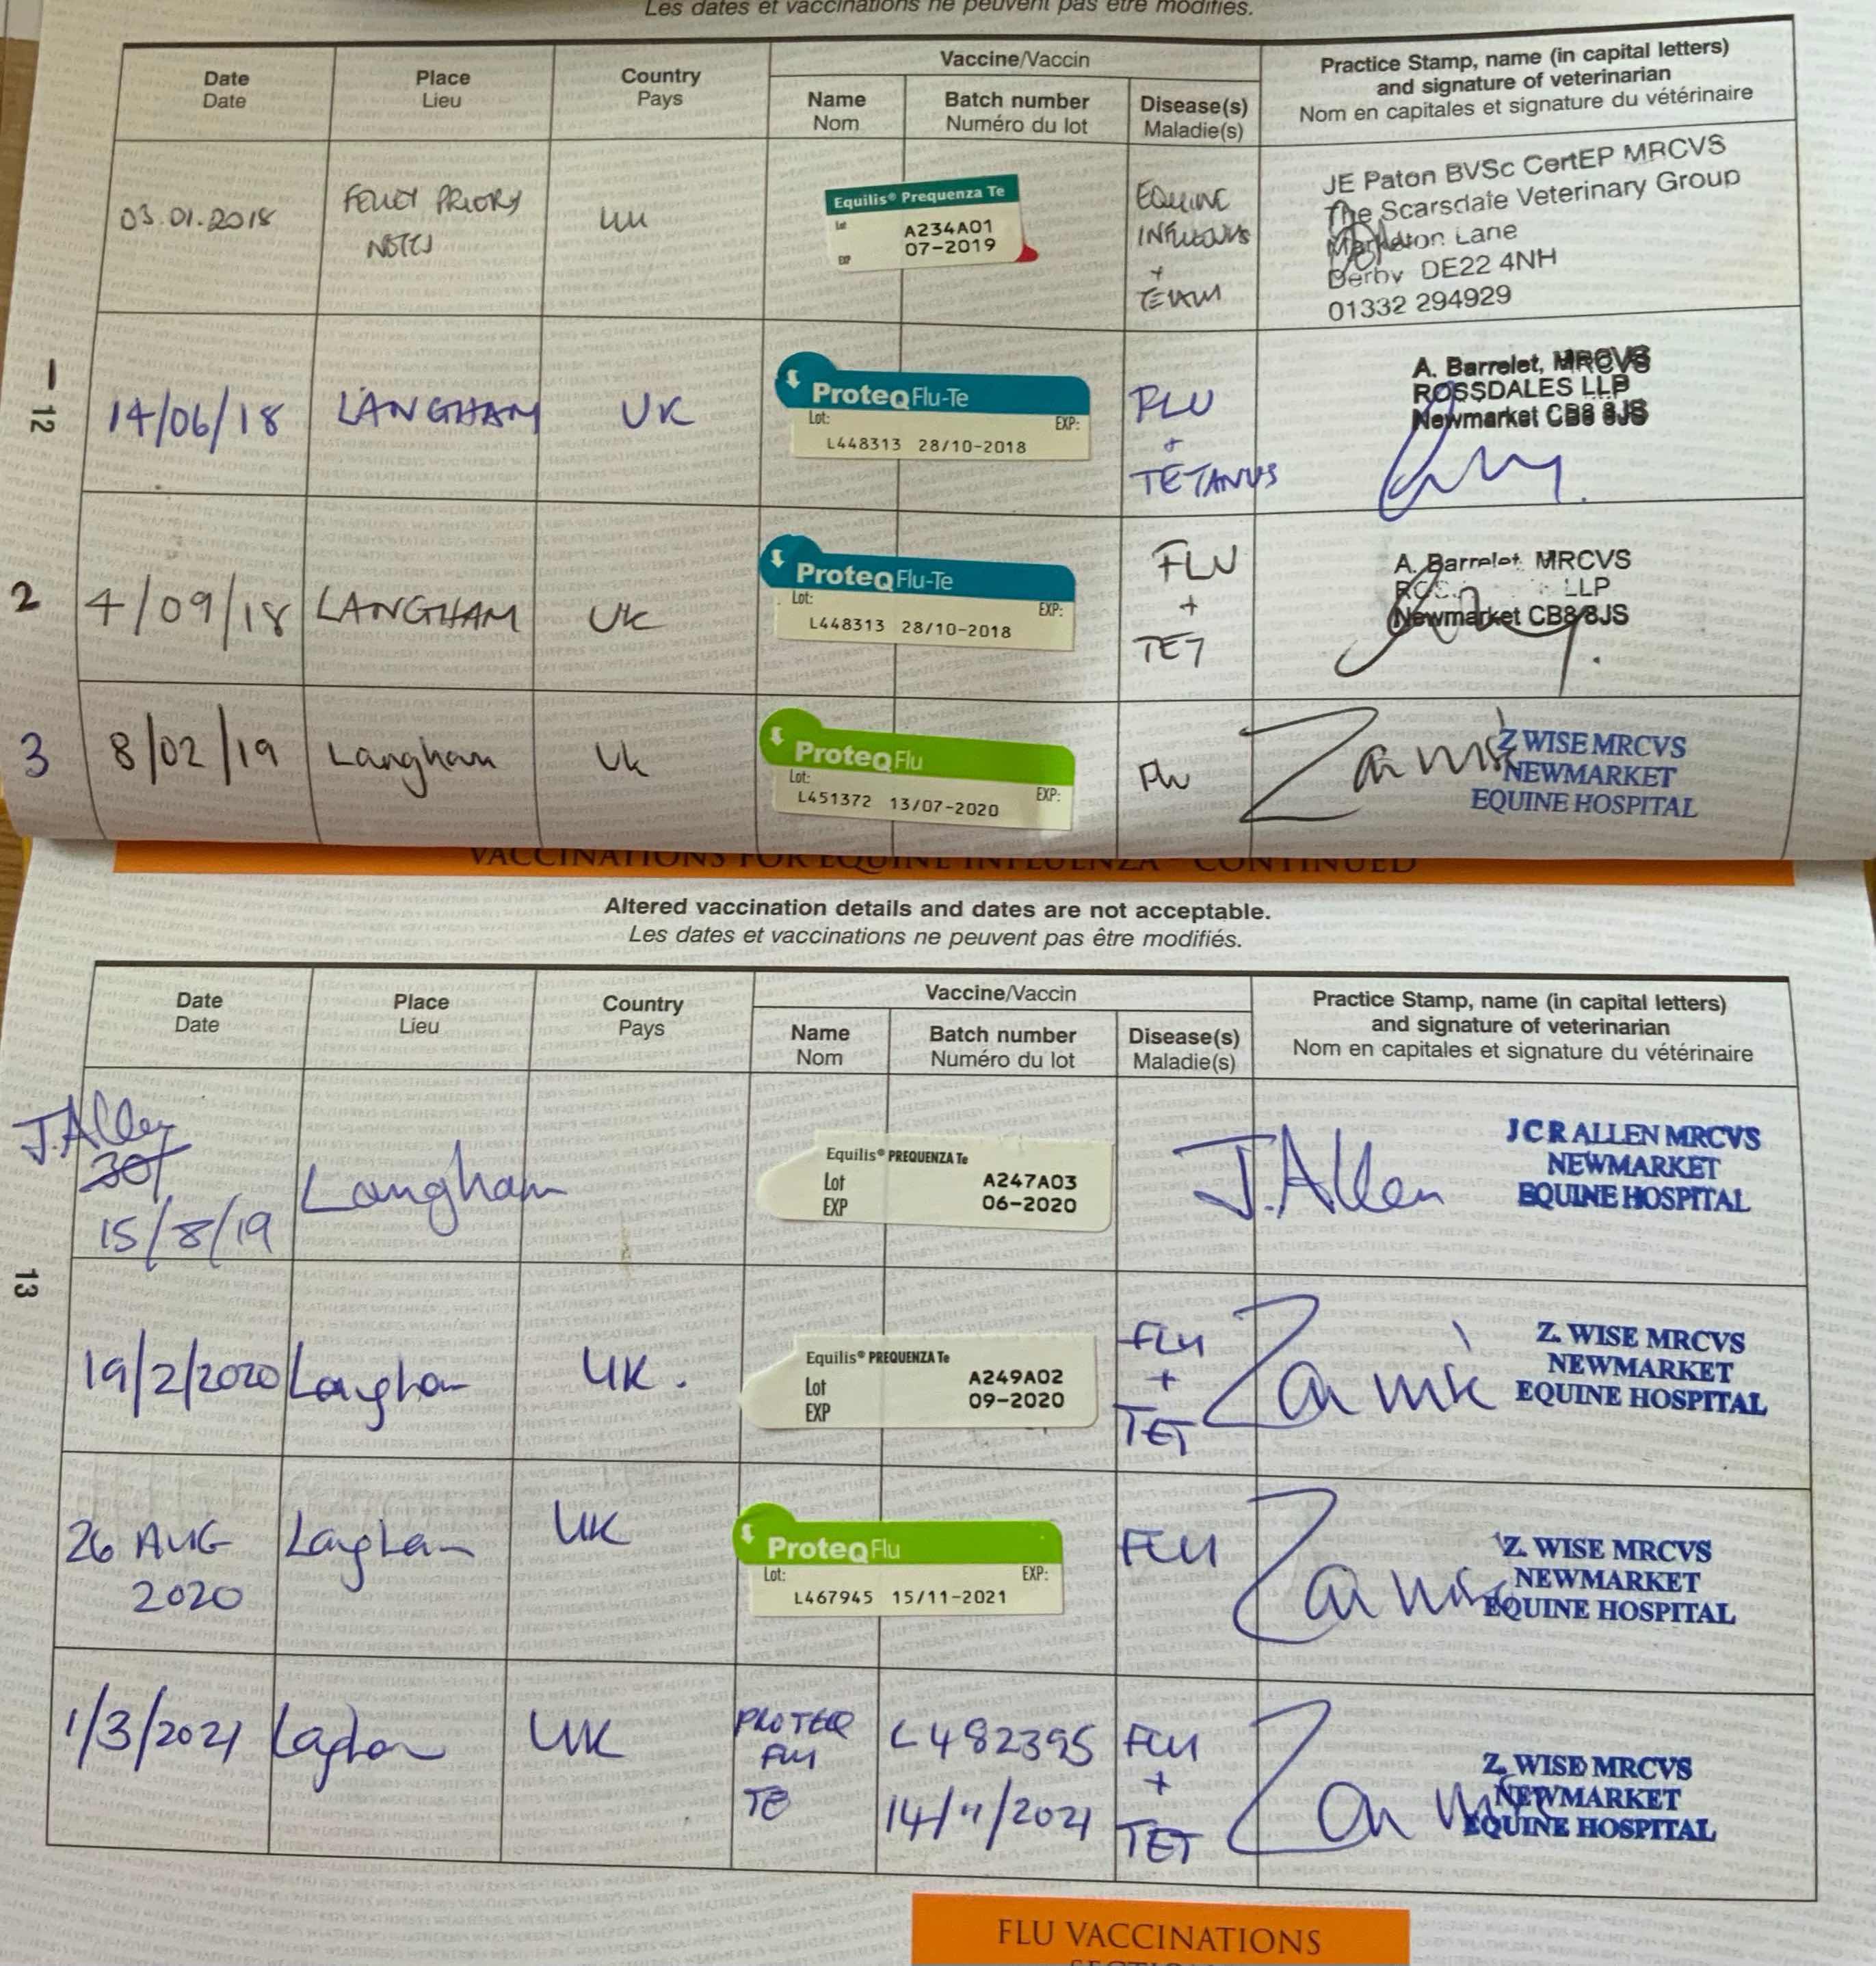 Les dates et vaccinations ne peuvent pas être modifiés.
Date
Date
Place
Lieu
Country
Pays
Vaccine/Vaccin
Name
Nom
Batch number
Numéro du lot
Disease(s)
Maladie(s)
Practice Stamp, name (in capital letters)
and signature of veterinarian
Nom en capitales et signature du vétérinaire
03.01.2018
PRIORY
NOTTS
UK
Equilis® Prequenza Te
Lot A234A01
EXP 07-2019
EQUINE
INFLUENZA
+
JE Paton BVSc CertEP MRCVS
The Scarsdale Veterinary Group
Markeaton Lane
Derby DE22 4NH
01332 294929
1
12
14/06/18
LANGHAM
UK
ProteqFlu-Te
Lot: EXP:
L448313 28/10-2018
FLU
+
TETANUS
A. Barrelet, MRCVS
ROSSDALES LLP
Newmarket CB8 8JS
2
4/09/18
LANGHAM
UK
ProteqFlu-Te
Lot: EXP:
L448313 28/10-2018
FLU
+
TET
A. Barrelet MRCVS
LLP
Newmarket CB8 8JS
3
8/02/19
Langham
UK
ProteqFlu
Lot: EXP:
L451372 13/07-2020
Flu
Z WISE MRCVS
NEWMARKET
EQUINE HOSPITAL
VACCINATIONS FOR EQUINE INFLUENZA - CONTINUED
Altered vaccination details and dates are not acceptable.
Les dates et vaccinations ne peuvent pas être modifiés.
Date
Date
Place
Lieu
Country
Pays
Vaccine/Vaccin
Name
Nom
Batch number
Numéro du lot
Disease(s)
Maladie(s)
Practice Stamp, name (in capital letters)
and signature of veterinarian
Nom en capitales et signature du vétérinaire
J.Allen
30/
15/8/19
Langham
Equilis® PREQUENZA Te
Lot A247A03
EXP 06-2020
J.Allen
J C R ALLEN MRCVS
NEWMARKET
EQUINE HOSPITAL
13
19/2/2020
Langham
UK.
Equilis® PREQUENZA Te
Lot A249A02
EXP 09-2020
FLU
+
TET
Z. WISE MRCVS
NEWMARKET
EQUINE HOSPITAL
26 AUG
2020
Langham
UK
ProteqFlu
Lot: EXP:
L467945 15/11-2021
FLU
Z. WISE MRCVS
NEWMARKET
EQUINE HOSPITAL
1/3/2021
Langham
UK
PROTEQ
FLU
TE
L482395
14/11/2021
FLU
+
TET
Z. WISE MRCVS
NEWMARKET
EQUINE HOSPITAL
FLU VACCINATIONS